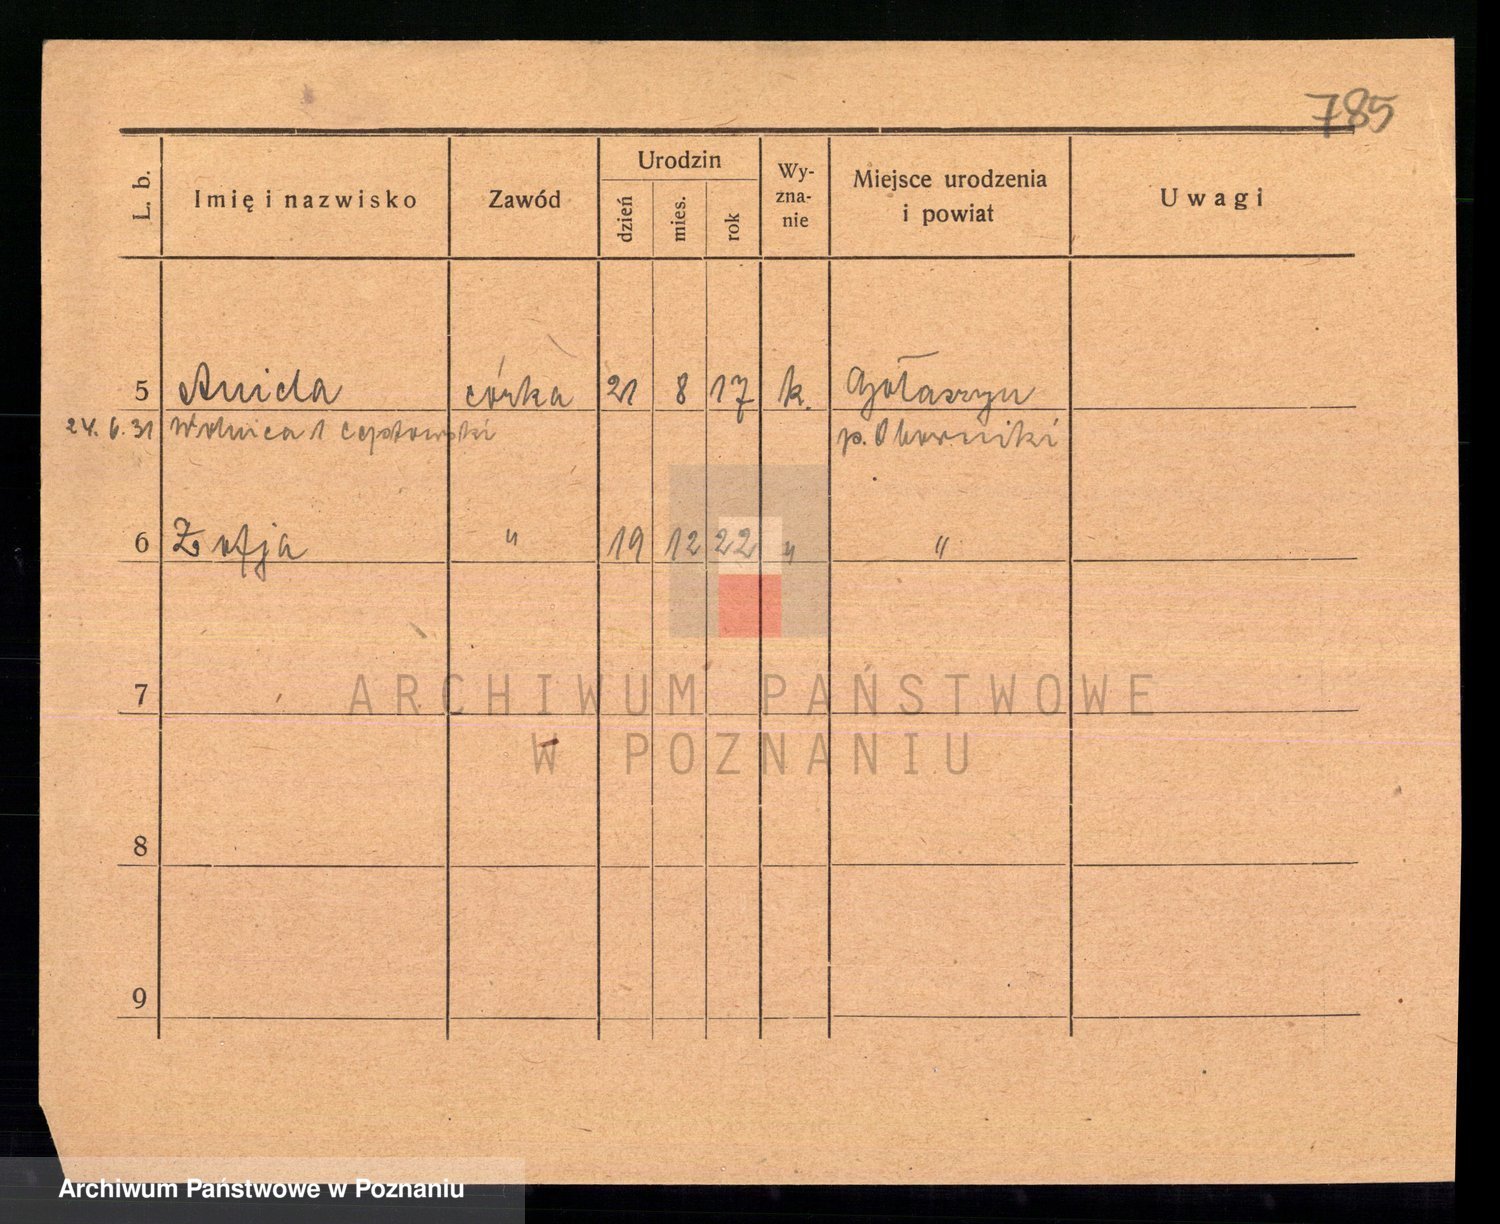 785
L. b. Imię i nazwisko Zawód Urodzin dzień mies. rok Wy-zna-nie Miejsce urodzenia i powiat Uwagi
5 Anida córka 21 8 17 k. Gołaszyn
24. 6. 31 Wolnica 1 p. Oborniki
6 Zofja " 19 12 22 " "
7
ARCHIWUM PAŃSTWOWE
W POZNANIU
8
9
Archiwum Państwowe w Poznaniu